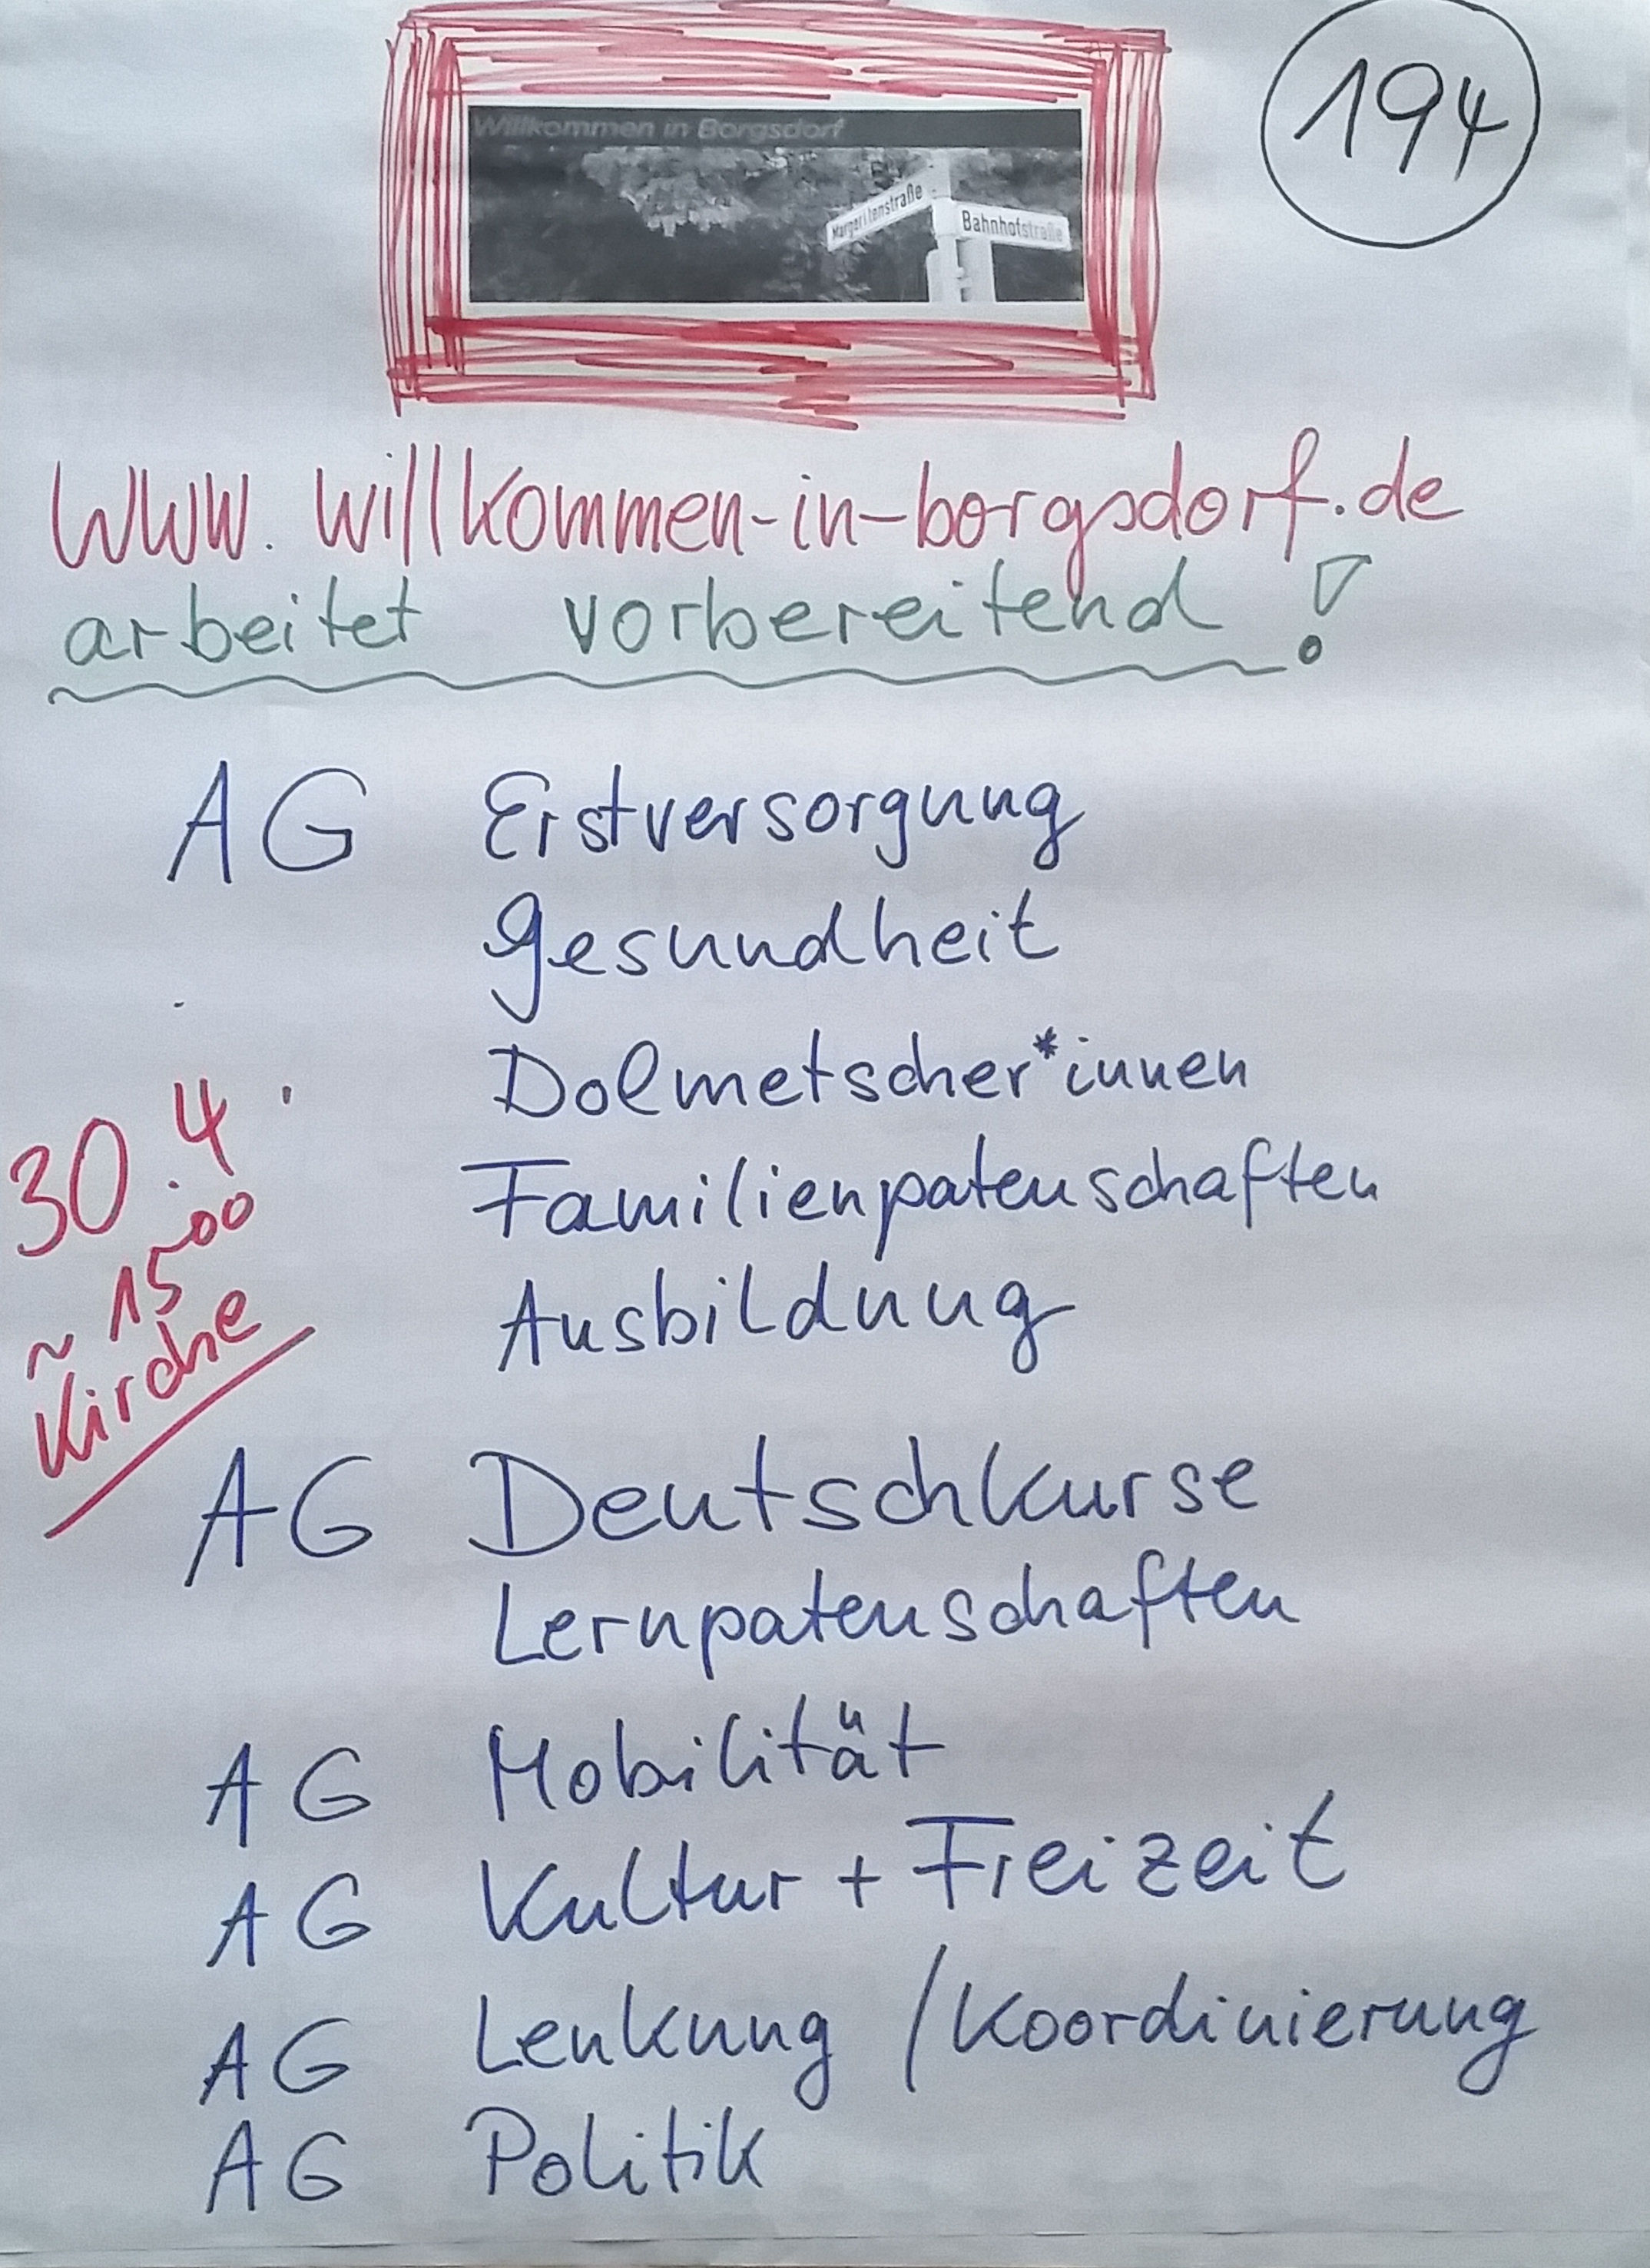 Willkommen in Borgsdorf
194
Margeritenstraße
Bahnhofstraße
www.willkommen-in-borgsdorf.de
arbeitet vorbereitend!
AG Erstversorgung
Gesundheit
Dolmetscher*innen
Familienpatenschaften
Ausbildung
30.4.
~ 1500
Kirche
AG Deutschkurse
Lernpatenschaften
AG Mobilität
AG Kultur + Freizeit
AG Lenkung / Koordinierung
AG Politik